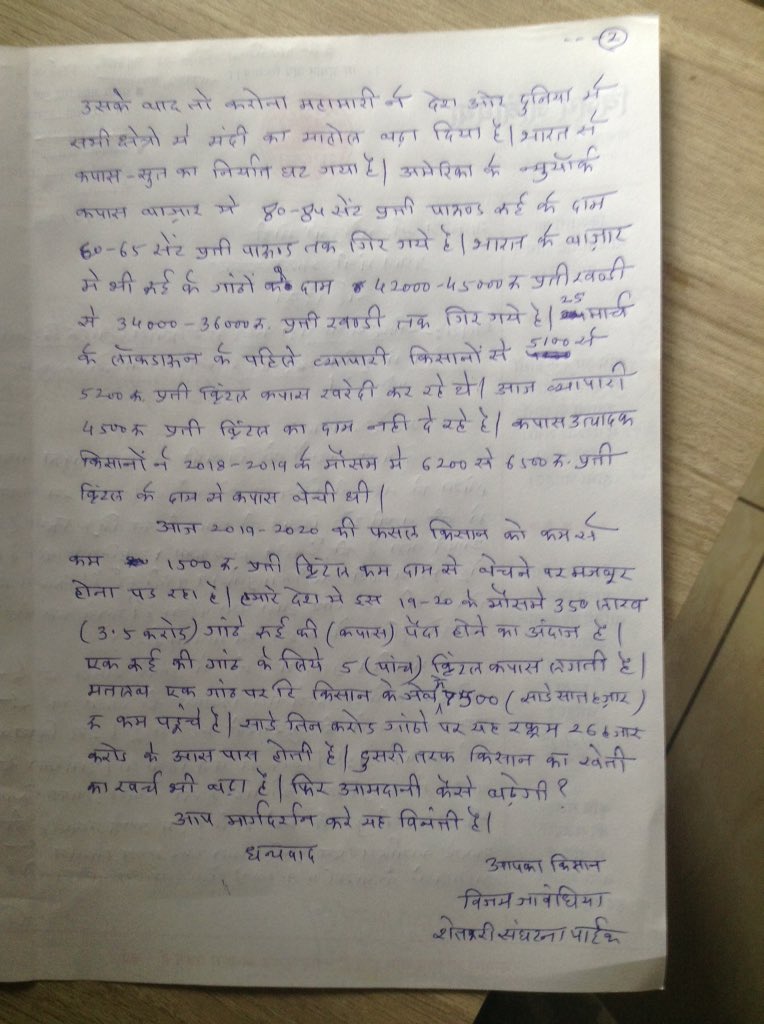 --- 2
उसके बाद तो करोना महामारी ने देश और दुनिया में
सभी क्षेत्रो मे मंदी का माहोल बढा दिया है| भारत से
कपास-सुत का निर्यात घट गया है| अमेरिका के न्युयॉर्क
कपास बाज़ार मे 80-84 सेंट प्रती पाऊन्ड रुई के दाम
60-65 सेंट प्रती पाऊन्ड तक गिर गये है| भारत के बाज़ार
मे भी रुई के गांठों के दाम 42000-45000 रु प्रती खन्डी
से 34000-36000 रु. प्रती खन्डी तक गिर गये है| 25 मार्च
के लॉकडाऊन के पहिले व्यापारी किसानों से 5100 से
5200 रु. प्रती क्विंटल कपास खरेदी कर रहे थे| आज व्यापारी
4500 रु प्रती क्विंटल का दाम नही दे रहे है| कपास उत्पादक
किसानों ने 2018-2019 के मौसम मे 6200 से 6500 रु. प्रती
क्विंटल के दाम से कपास बेची थी|
आज 2019-2020 की फसल किसान को कम से
कम 1500 रु. प्रती क्विंटल कम दाम से बेचने पर मजबूर
होना पड रहा है| हमारे देश मे इस 19-20 के मौसमे 350 लाख
(3.5 करोड) गांठे रुई की (कपास) पैदा होने का अंदाज है|
एक रुई की गांठ के लिये 5 (पांच) क्विंटल कपास लगती है|
मतलब एक गांठ पर किसान के जेब मे 7500 (साडे सात हज़ार)
रु कम पहूंचे है| साडे तिन करोड गांठो पर यह रक्कम 26 हजार
करोड के आस पास होती है| दुसरी तरफ किसान का खेती
का खर्च भी बढा है| फिर आमदानी कैसे बढेगी?
आप मार्गदर्शन करे यह विनंती है|
धन्यवाद
आपका किसान
विजय जावंधिया
शेतकरी संघटना पाईक